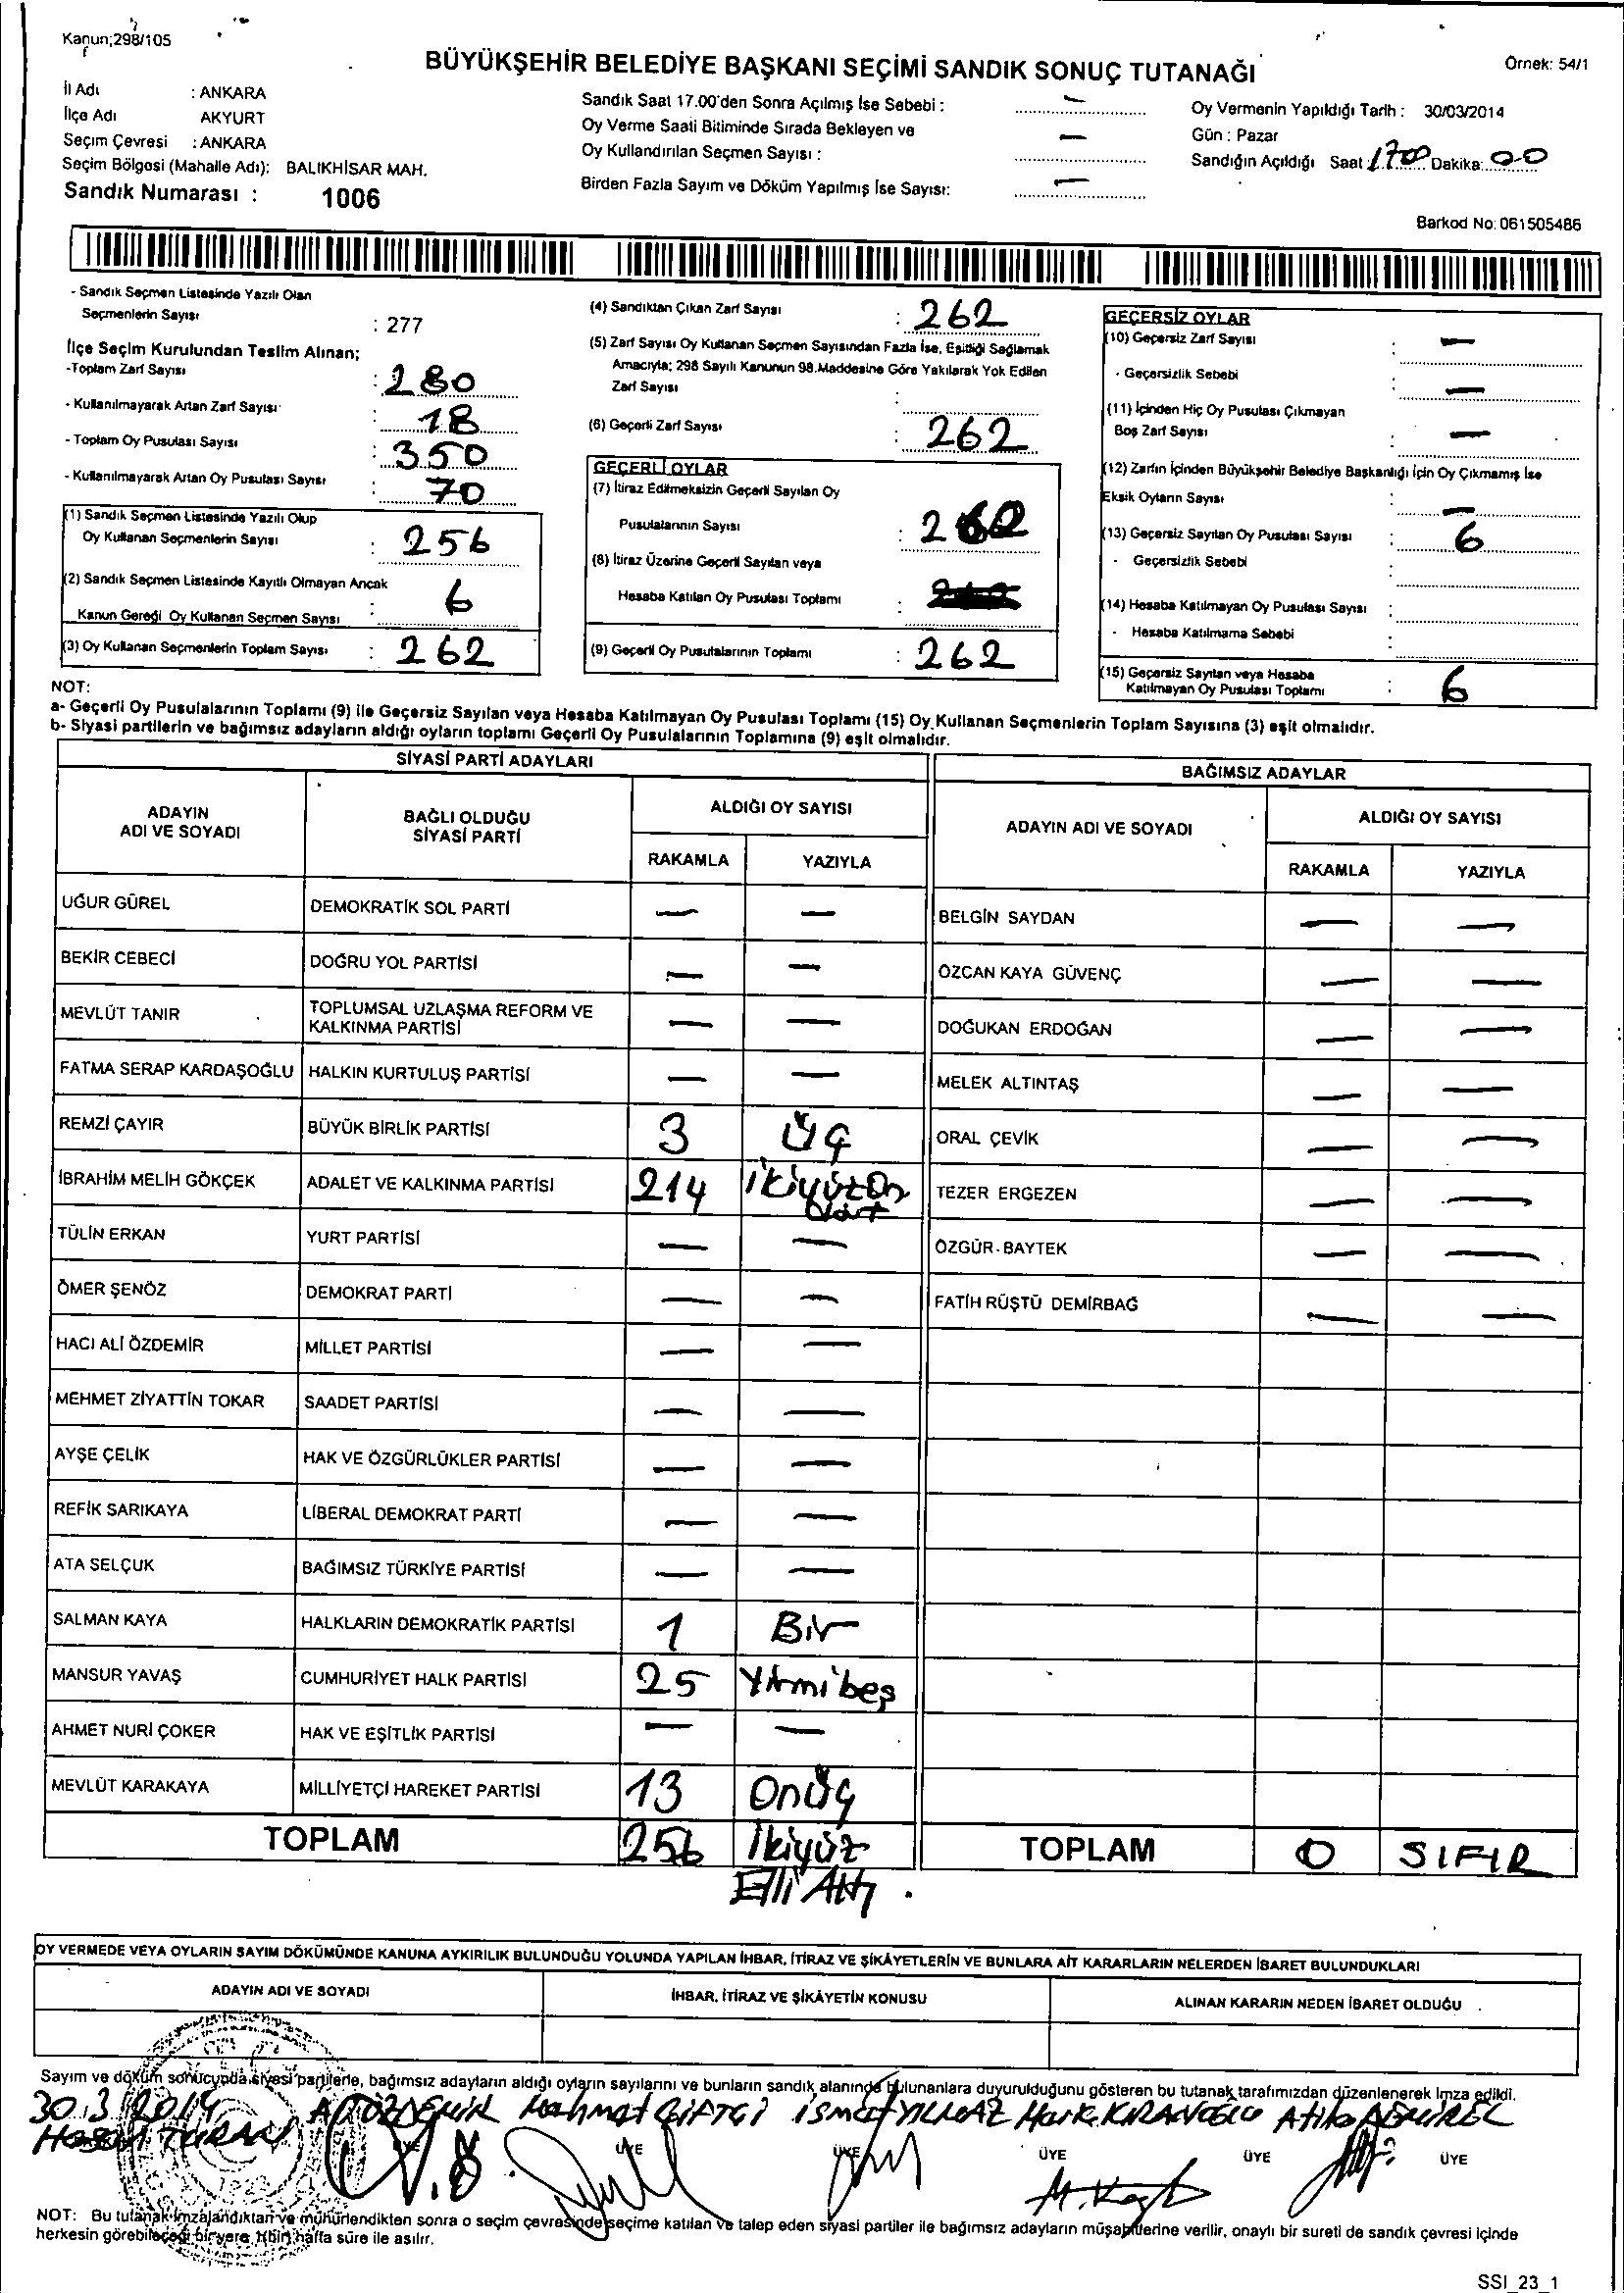 Kanun;298/105
BÜYÜKŞEHİR BELEDİYE BAŞKANI SEÇİMİ SANDIK SONUÇ TUTANAĞI
Örnek: 54/1
İl Adı : ANKARA
İlçe Adı AKYURT
Seçim Çevresi : ANKARA
Seçim Bölgesi (Mahalle Adı): BALIKHİSAR MAH.
Sandık Numarası : 1006
Sandık Saat 17.00'den Sonra Açılmış İse Sebebi : —
Oy Verme Saati Bitiminde Sırada Bekleyen ve
Oy Kullandırılan Seçmen Sayısı : —
Birden Fazla Sayım ve Döküm Yapılmış İse Sayısı: —
Oy Vermenin Yapıldığı Tarih : 30/03/2014
Gün : Pazar
Sandığın Açıldığı Saat 1700 Dakika: 00
Barkod No: 061505486
- Sandık Seçmen Listesinde Yazılı Olan
Seçmenlerin Sayısı : 277
İlçe Seçim Kurulundan Teslim Alınan;
-Toplam Zarf Sayısı : 280
- Kullanılmayarak Artan Zarf Sayısı : 18
- Toplam Oy Pusulası Sayısı : 350
- Kullanılmayarak Artan Oy Pusulası Sayısı : 70
(1) Sandık Seçmen Listesinde Yazılı Olup
Oy Kullanan Seçmenlerin Sayısı : 256
(2) Sandık Seçmen Listesinde Kayıtlı Olmayan Ancak
Kanun Gereği Oy Kullanan Seçmen Sayısı : 6
(3) Oy Kullanan Seçmenlerin Toplam Sayısı : 262
(4) Sandıktan Çıkan Zarf Sayısı : 262
(5) Zarf Sayısı Oy Kullanan Seçmen Sayısından Fazla İse, Eşitliği Sağlamak
Amacıyla; 298 Sayılı Kanunun 98.Maddesine Göre Yakılarak Yok Edilen
Zarf Sayısı :
(6) Geçerli Zarf Sayısı : 262
GEÇERLİ OYLAR
(7) İtiraz Edilmeksizin Geçerli Sayılan Oy
Pusulalarının Sayısı : 262
(8) İtiraz Üzerine Geçerli Sayılan veya
Hesaba Katılan Oy Pusulası Toplamı :
(9) Geçerli Oy Pusulalarının Toplamı : 262
GEÇERSİZ OYLAR
(10) Geçersiz Zarf Sayısı : —
- Geçersizlik Sebebi : —
(11) İçinden Hiç Oy Pusulası Çıkmayan
Boş Zarf Sayısı : —
(12) Zarfın İçinden Büyükşehir Belediye Başkanlığı İçin Oy Çıkmamış İse
Eksik Oyların Sayısı : —
(13) Geçersiz Sayılan Oy Pusulası Sayısı : 6
- Geçersizlik Sebebi :
(14) Hesaba Katılmayan Oy Pusulası Sayısı :
- Hesaba Katılmama Sebebi :
(15) Geçersiz Sayılan veya Hesaba
Katılmayan Oy Pusulası Toplamı : 6
NOT:
a- Geçerli Oy Pusulalarının Toplamı (9) ile Geçersiz Sayılan veya Hesaba Katılmayan Oy Pusulası Toplamı (15) Oy Kullanan Seçmenlerin Toplam Sayısına (3) eşit olmalıdır.
b- Siyasi partilerin ve bağımsız adayların aldığı oyların toplamı Geçerli Oy Pusulalarının Toplamına (9) eşit olmalıdır.
SİYASİ PARTİ ADAYLARI
ADAYIN
ADI VE SOYADI
BAĞLI OLDUĞU
SİYASİ PARTİ
ALDIĞI OY SAYISI
RAKAMLA YAZIYLA
UĞUR GÜREL DEMOKRATİK SOL PARTİ — —
BEKİR CEBECİ DOĞRU YOL PARTİSİ — —
MEVLÜT TANIR TOPLUMSAL UZLAŞMA REFORM VE
KALKINMA PARTİSİ — —
FATMA SERAP KARDAŞOĞLU HALKIN KURTULUŞ PARTİSİ — —
REMZİ ÇAYIR BÜYÜK BİRLİK PARTİSİ 3 üç
İBRAHİM MELİH GÖKÇEK ADALET VE KALKINMA PARTİSİ 214 ikiyüzOn
dört
TÜLİN ERKAN YURT PARTİSİ — —
ÖMER ŞENÖZ DEMOKRAT PARTİ — —
HACI ALİ ÖZDEMİR MİLLET PARTİSİ — —
MEHMET ZİYATTİN TOKAR SAADET PARTİSİ — —
AYŞE ÇELİK HAK VE ÖZGÜRLÜKLER PARTİSİ — —
REFİK SARIKAYA LİBERAL DEMOKRAT PARTİ — —
ATA SELÇUK BAĞIMSIZ TÜRKİYE PARTİSİ — —
SALMAN KAYA HALKLARIN DEMOKRATİK PARTİSİ 1 Bir
MANSUR YAVAŞ CUMHURİYET HALK PARTİSİ 25 Yirmi beş
AHMET NURİ ÇOKER HAK VE EŞİTLİK PARTİSİ — —
MEVLÜT KARAKAYA MİLLİYETÇİ HAREKET PARTİSİ 13 Onüç
TOPLAM 256 İkiyüz
Elli Altı
BAĞIMSIZ ADAYLAR
ADAYIN ADI VE SOYADI
ALDIĞI OY SAYISI
RAKAMLA YAZIYLA
BELGİN SAYDAN — —
ÖZCAN KAYA GÜVENÇ — —
DOĞUKAN ERDOĞAN — —
MELEK ALTINTAŞ — —
ORAL ÇEVİK — —
TEZER ERGEZEN — —
ÖZGÜR BAYTEK — —
FATİH RÜŞTÜ DEMİRBAĞ — —
TOPLAM 0 SIFIR
OY VERMEDE VEYA OYLARIN SAYIM DÖKÜMÜNDE KANUNA AYKIRILIK BULUNDUĞU YOLUNDA YAPILAN İHBAR, İTİRAZ VE ŞİKÂYETLERİN VE BUNLARA AİT KARARLARIN NELERDEN İBARET BULUNDUKLARI
ADAYIN ADI VE SOYADI İHBAR, İTİRAZ VE ŞİKÂYETİN KONUSU ALINAN KARARIN NEDEN İBARET OLDUĞU
Sayım ve döküm sonucunda siyasi partilerle, bağımsız adayların aldığı oyların sayılarını ve bunların sandık alanında bulunanlara duyurulduğunu gösteren bu tutanak tarafımızdan düzenlenerek imza edildi.
30.3.2014 Mahmat ÇİFTÇİ ismet YILMAZ
Hasan TURAN
ÜYE ÜYE ÜYE ÜYE ÜYE ÜYE
NOT: Bu tutanak imzalandıktan ve mühürlendikten sonra o seçim çevresinde seçime katılan ve talep eden siyasi partiler ile bağımsız adayların müşahitlerine verilir, onaylı bir sureti de sandık çevresi içinde
herkesin görebileceği bir yere bir hafta süre ile asılır.
SSI_23_1